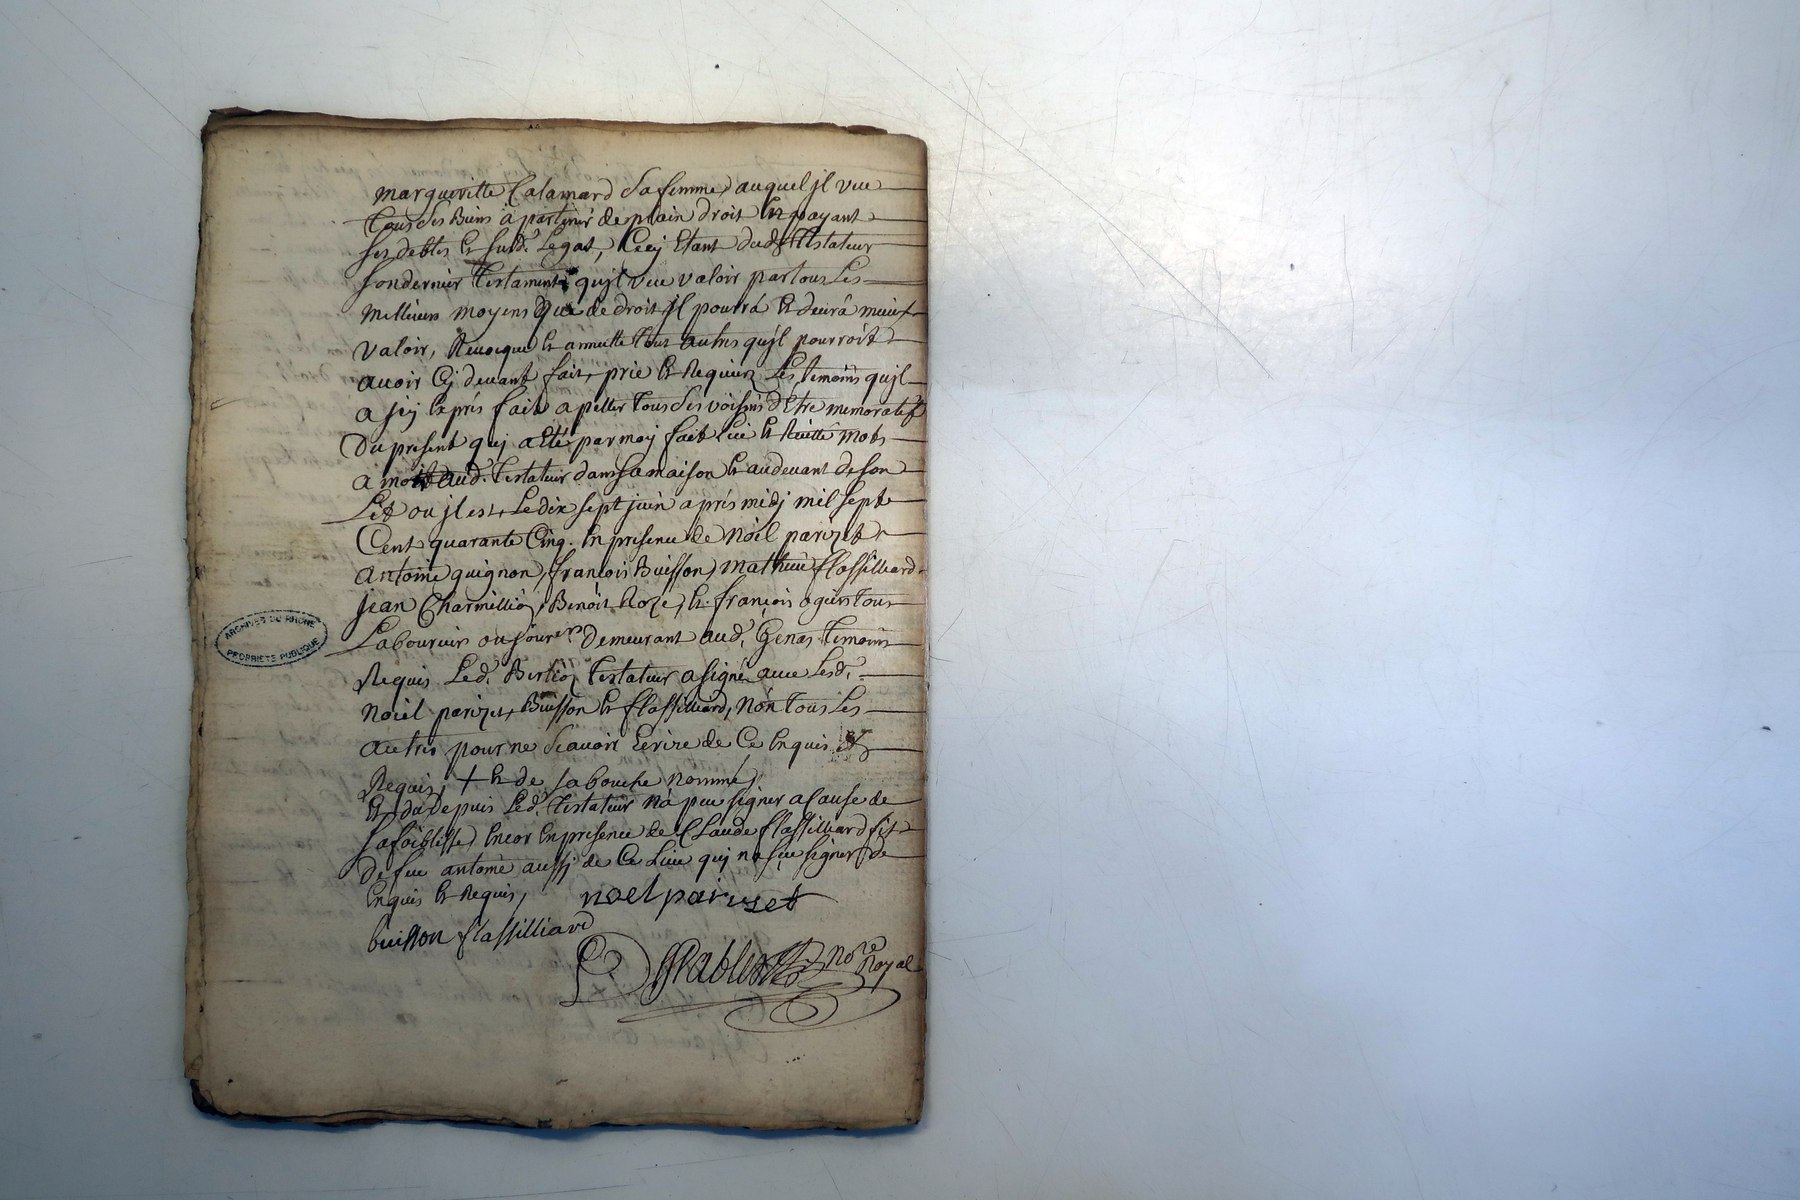 Margueritte Calamard sa femme auquel jl veue
tous ses Biens apartenir de plain droit En payant
ses debtes Et susd. Legat, Cecy Etant dud. Testateur
son dernier Testament qujl veue valoir par tous Les
Meillieurs moyens Que de droit jl pourrá Et deurá mieux
valoir, Reuoque Et annulle tous autres qujl pourroit
auoir Cy deuant fait, prie Et Requiert Les temoins qujl
a jcy Exprés fait apeller tous ses voisins d'Etre memoratifs
Du present quj a Eté par moy fait Lû Et Recitté mots
a mots aud. Testateur dans sa maison Et au deuant de son
Lit ou jl est, Le dix sept juin aprés midj mil sept
Cent quarante Cinq. En presence de Noël parizet
Antoine guignon, françois Buisson, Mathieu flassilliard
jean Charmillion, Benoit Roze, Et françois ogier tous
Laboureurs ou jour.ers Demeurant aud. Genas temoins
Requis Led. Berlioz Testateur a signé auec Lesd.
Noël parizet, Buisson Et flassilliard, Non tous Les
autres pour ne sçauoir Ecrire de Ce Enquis Et
Requis, + Et de sa bouche nommé
Et du depuis Led. Testateur n'a peu signer a Cause de
sa foiblesse, Encor En presence de Claude flassilliard fils
de feu antoine aussj de Ce Lieu quj na sçu signer de
Enquis Et Requis, noel parizet
buisson flassilliard
No.re Royal
ARCHIVES DU RHÔNE
PROPRIÉTÉ PUBLIQUE